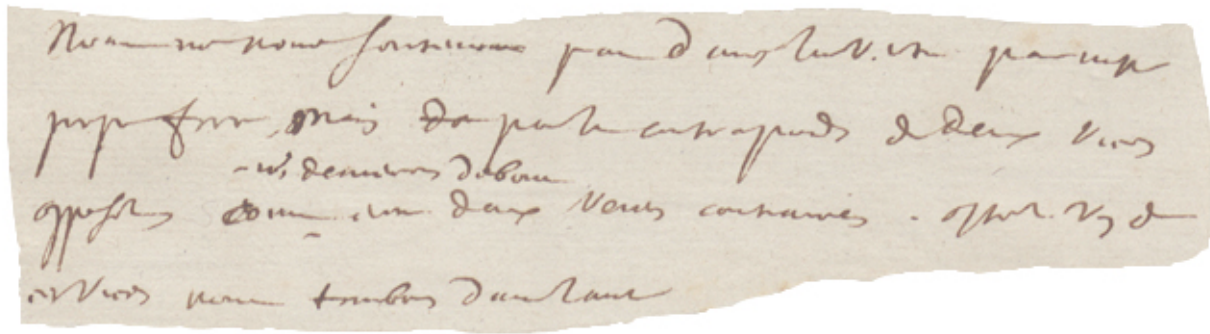 Nous ne nous soutenons pas dans la vertu par nre
propre force, mais par le contrepoids de deux vices
ns demeurons debout
opposés comme entre deux vents contraires. ostez un de
ces vices nous tombons dans lautre